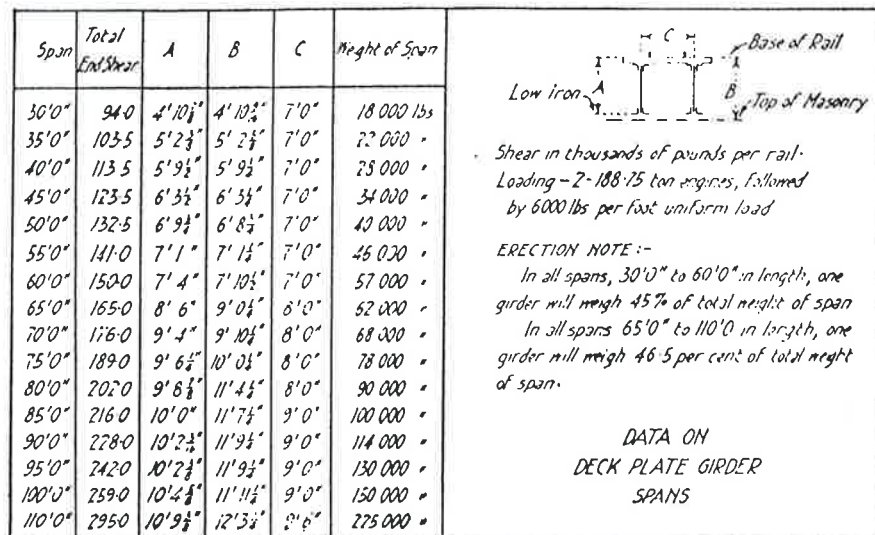 Span Total End Shear A B C Weight of Span
30'0" 94.0 7'0" 18 000 lbs
35'0" 103.5 7'0" 22 000 "
40'0" 113.5 5'9½" 5'9½" 7'0" 28 000 "
45'0" 123.5 7'0" 34 000 "
50'0" 132.5 7'0" 40 000 "
55'0" 141.0 7'1" 7'0" 46 000 "
60'0" 150.0 7'4" 7'10½" 7'0" 57 000 "
65'0" 165.0 8'6" 8'0" 62 000 "
70'0" 176.0 9'4" 8'0" 68 000 "
75'0" 189.0 8'0" 78 000 "
80'0" 202.0 8'0" 90 000 "
85'0" 216.0 10'0" 9'0" 100 000 "
90'0" 228.0 9'0" 114 000 "
95'0" 242.0 9'0" 130 000 "
100'0" 259.0 9'0" 150 000 "
110'0" 295.0 225 000 "
C
Base of Rail
Low iron A B
Top of Masonry
Shear in thousands of pounds per rail.
Loading - 2 - 188.75 ton engines, followed
by 6000 lbs per foot uniform load
ERECTION NOTE :-
In all spans, 30'0" to 60'0" in length, one
girder will weigh 45% of total weight of span
In all spans 65'0" to 110'0 in length, one
girder will weigh 46.5 per cent of total weght
of span.
DATA ON
DECK PLATE GIRDER
SPANS